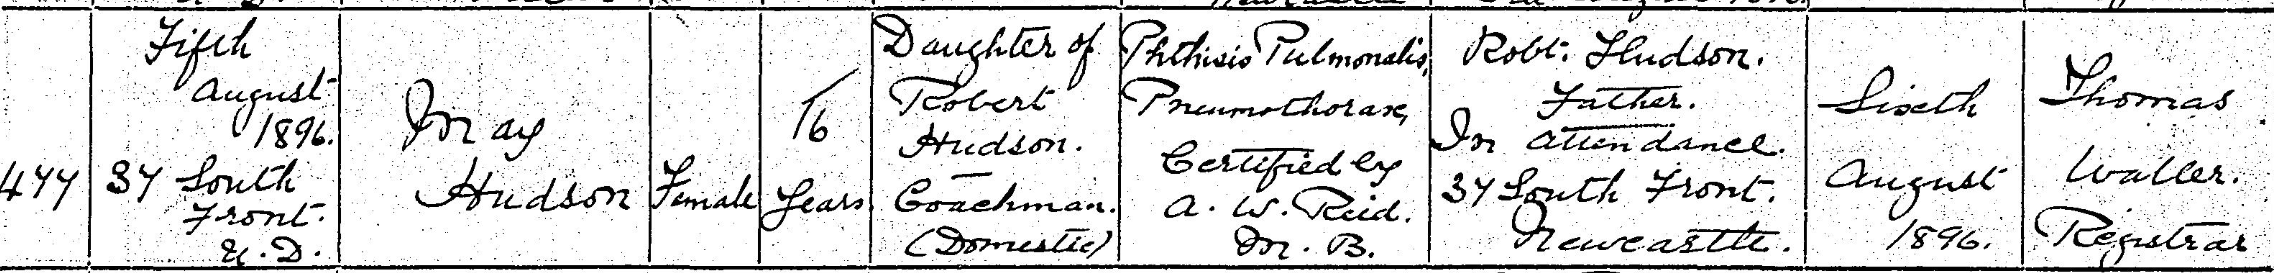 477
Fifth
August
1896.
37 South
Front.
U.D.
May
Hudson
Female
16
Years
Daughter of
Robert
Hudson.
Coachman.
(Domestic)
Phthisis Pulmonalis,
Pneumothorax,
Certified by
A. W. Reid.
M. B.
Robt. Hudson.
Father.
In attendance.
37 South Front.
Newcastle.
Sixth
August
1896.
Thomas
Waller.
Registrar